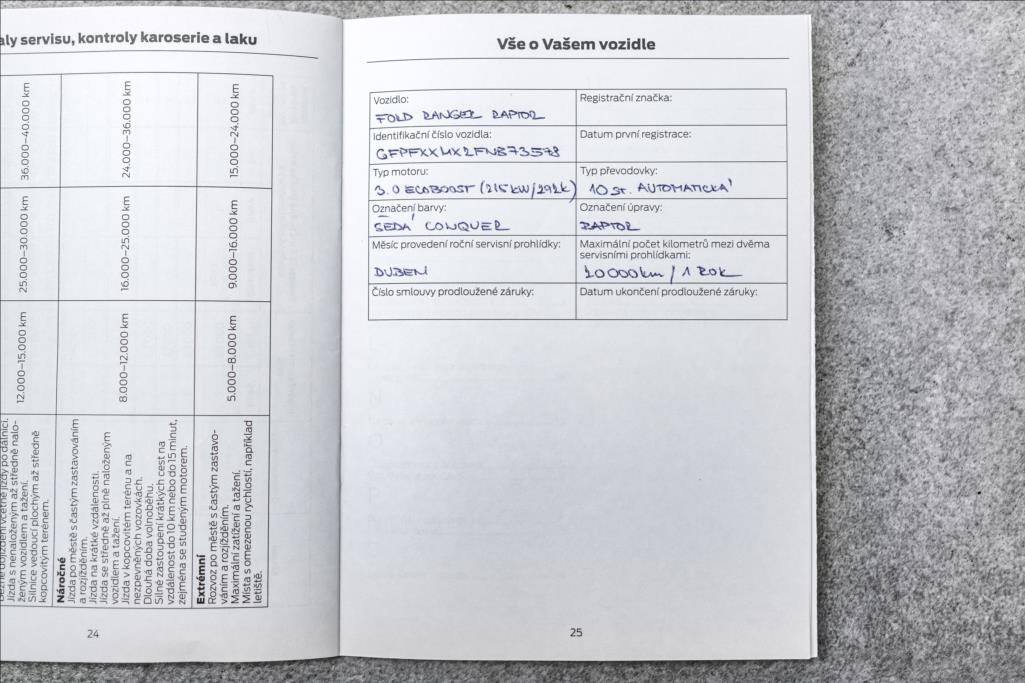 aly servisu, kontroly karoserie a laku
36.000–40.000 km
24.000–36.000 km
15.000–24.000 km
25.000–30.000 km
16.000–25.000 km
9.000–16.000 km
12.000–15.000 km
8.000–12.000 km
5.000–8.000 km
Jízda s nenaloženým až středně nalo-
ženým vozidlem a tažení.
Silnice vedoucí plochým až středně
kopcovitým terénem.
Náročné
Jízda po městě s častým zastavováním
a rozjížděním.
Jízda na krátké vzdálenosti.
Jízda se středně až plně naloženým
vozidlem a tažení.
Jízda v kopcovitém terénu a na
nezpevněných vozovkách.
Dlouhá doba volnoběhu.
Silné zastoupení krátkých cest na
vzdálenost do 10 km nebo do 15 minut,
zejména se studeným motorem.
Extrémní
Rozvoz po městě s častým zastavo-
váním a rozjížděním.
Maximální zatížení a tažení.
Místa s omezenou rychlostí, například
letiště.
24
Vše o Vašem vozidle
Vozidlo:
FORD RANGER RAPTOR
Registrační značka:
Identifikační číslo vozidla:
Datum první registrace:
Typ motoru:
3.0 ECOBOOST (215kW/292k)
Typ převodovky:
10 ST. AUTOMATICKÁ
Označení barvy:
ŠEDÁ CONQUER
Označení úpravy:
RAPTOR
Měsíc provedení roční servisní prohlídky:
DUBEN
Maximální počet kilometrů mezi dvěma
servisními prohlídkami:
20000km / 1 ROK
Číslo smlouvy prodloužené záruky:
Datum ukončení prodloužené záruky:
25